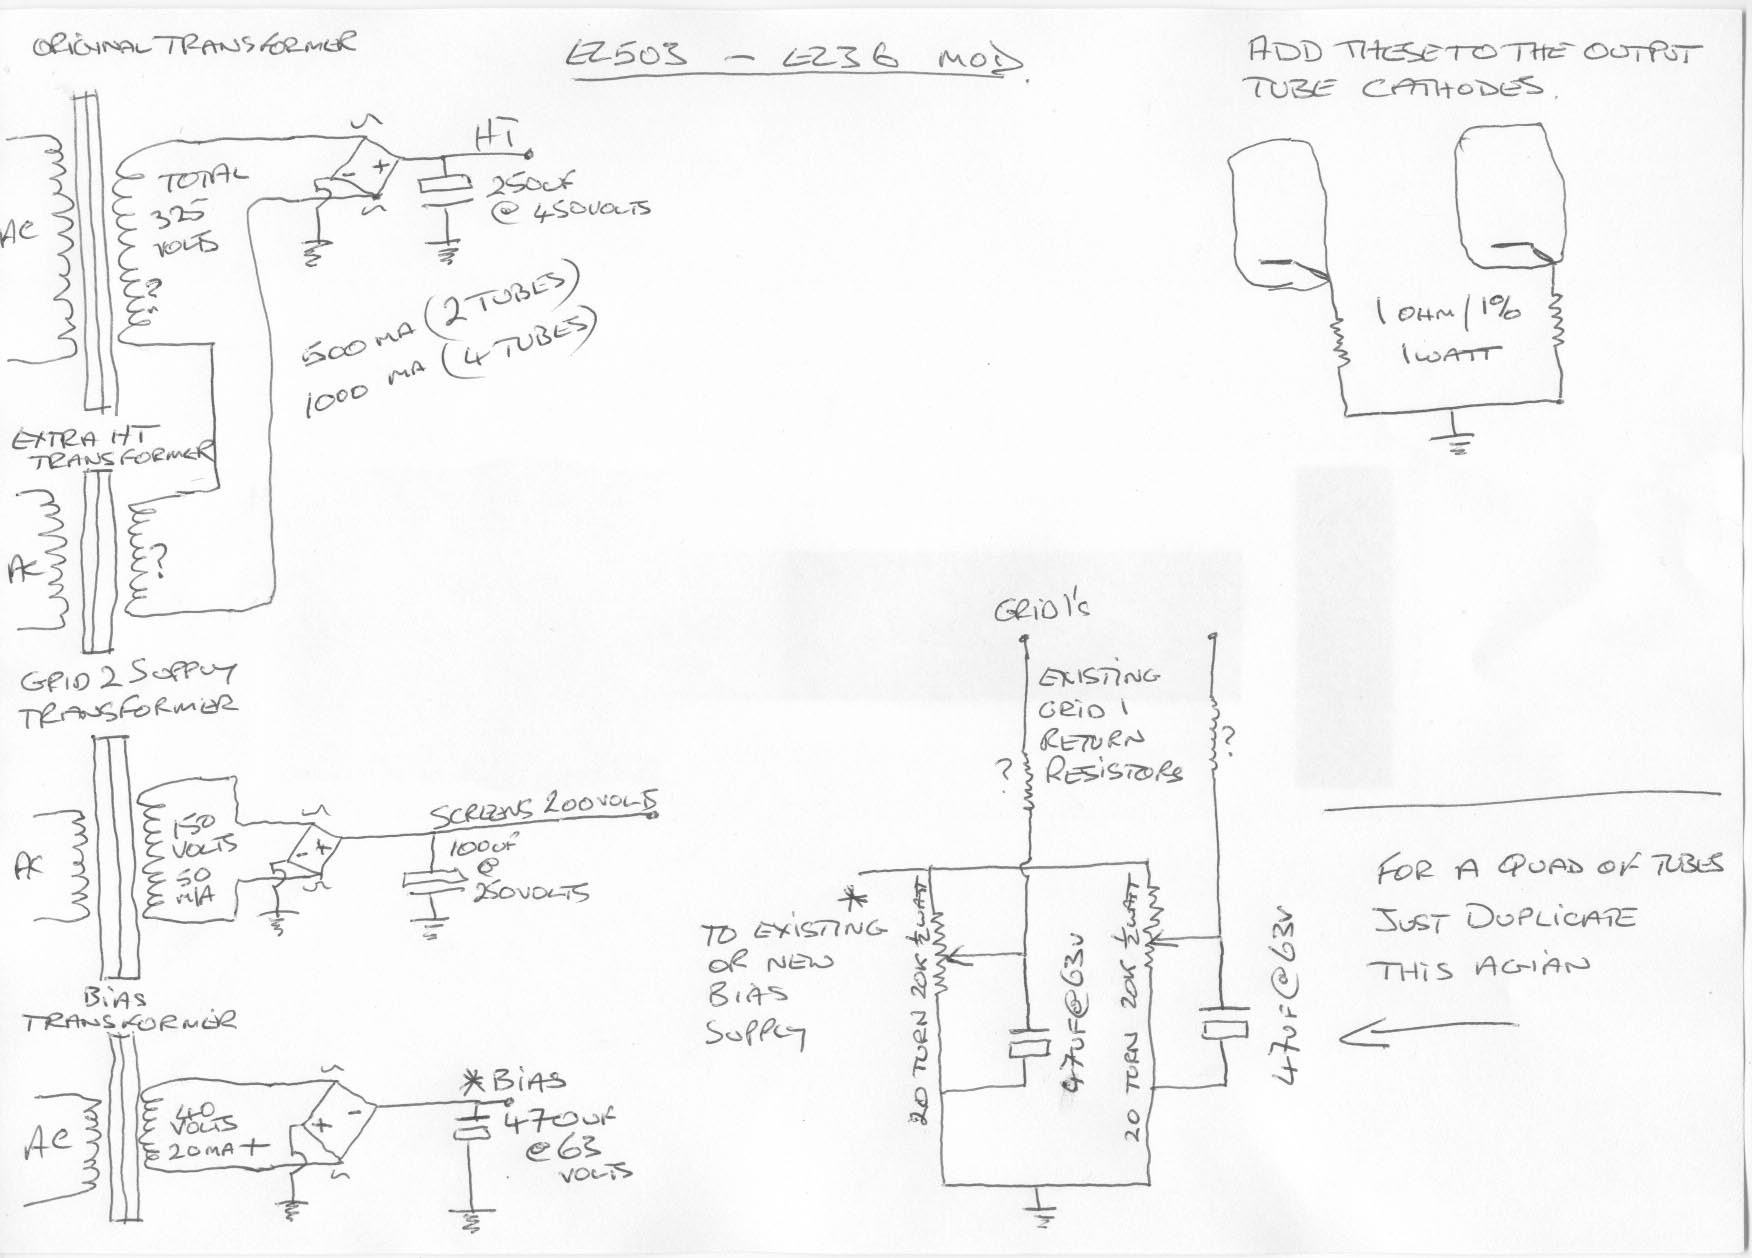 ORIGINAL TRANSFORMER
EL503 - EL36 MOD.
ADD THESE TO THE OUTPUT
TUBE CATHODES.
AC
TOTAL
325
VOLTS
?
~
+
-
~
HT
250UF
@ 450VOLTS
500 MA (2 TUBES)
1000 MA (4 TUBES)
1 OHM/1%
1WATT
EXTRA HT
TRANSFORMER
AC
?
GRID 2 SUPPLY
TRANSFORMER
AC
150
VOLTS
50
M/A
~
- +
~
SCREENS 200VOLTS
100UF
@
250VOLTS
BIAS
TRANSFORMER
AC
40
VOLTS
20MA+
~
+
-
~
* BIAS
470UF
@ 63
VOLTS
GRID 1's
EXISTING
GRID 1
RETURN
RESISTORS
?
?
*
TO EXISTING
OR NEW
BIAS
SUPPLY
20 TURN 20K ½WATT
47UF@63V
20 TURN 20K ½WATT
47UF@63V
FOR A QUAD OF TUBES
JUST DUPLICATE
THIS AGIAN